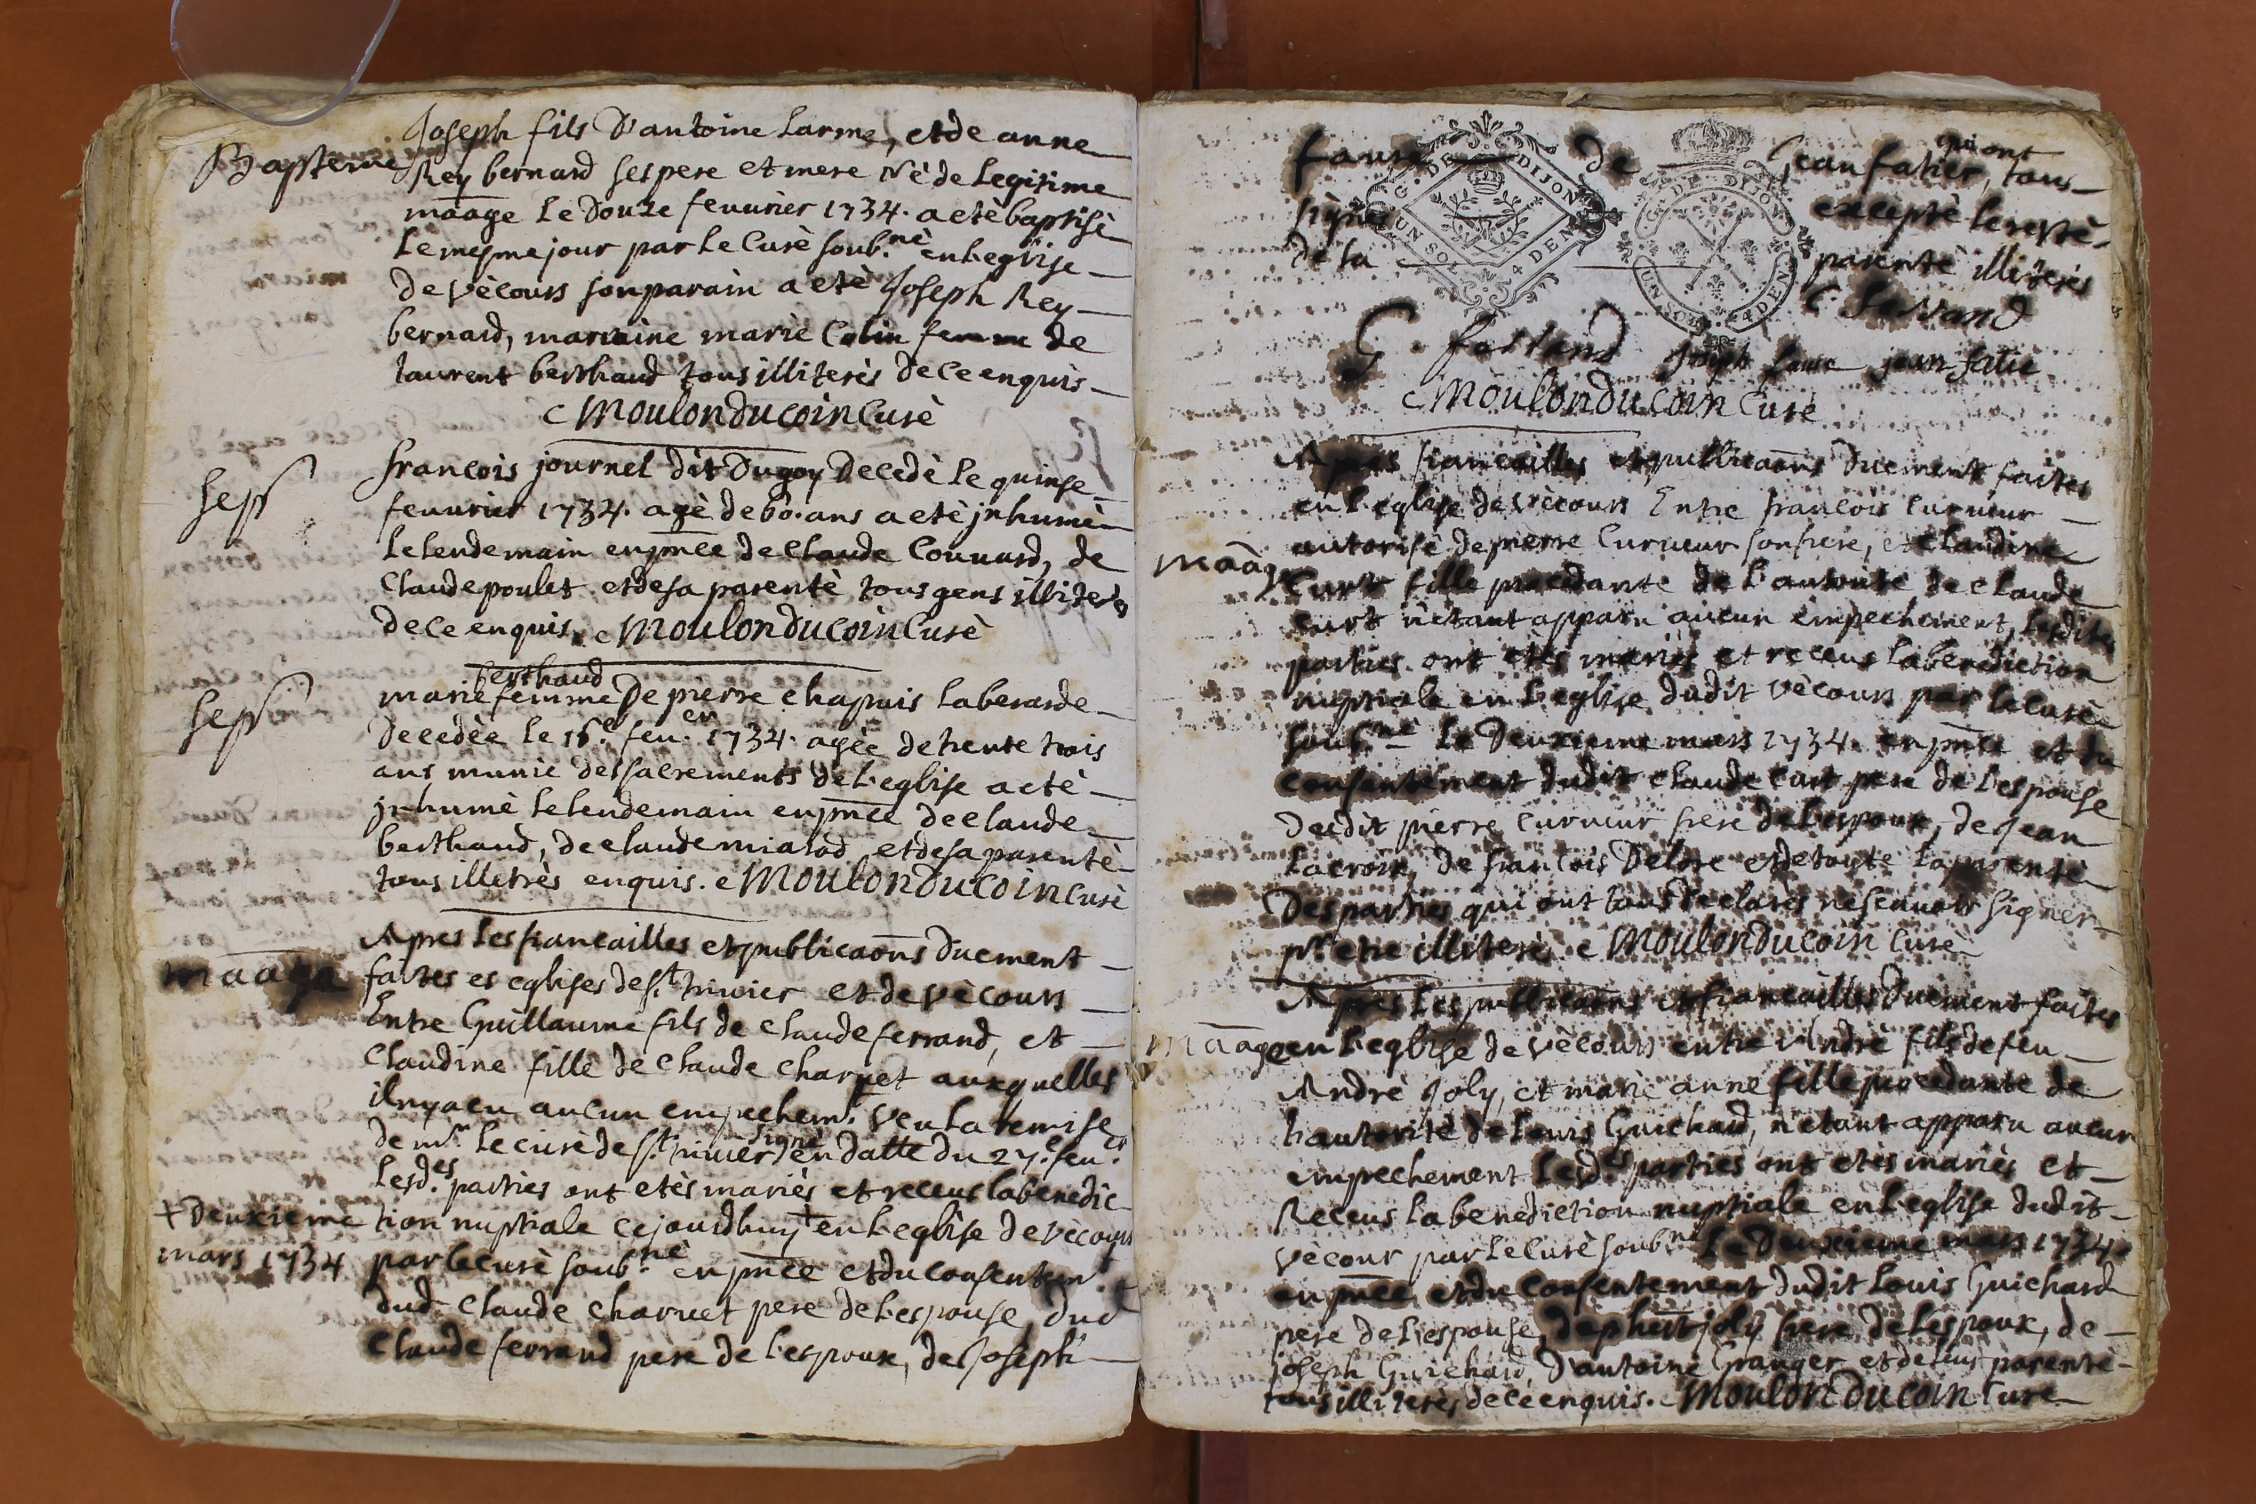 Joseph fils d'antoine Larme, et de anne
Bapteme
Rey bernard ses pere et mere nè de Legitime
māage Le Douze feuurier 1734. a etè baptisè
Le mesme jour par Le Curè soub.nè en L'eglise
de vècours son parain a etè Joseph Rey
bernard, maraine marie Colin femme de
Laurent berthaud tous illiterès de ce enquis
C MoulonDucoin Curè
sep
francois journel dit Dugoy Decedè Le quinse
feuurier 1734. agè de 60. ans a etè jnhumè
Le Lendemain en pn̄ce de Claude Couuard, de
Claude poulet et de sa parentè tous gens illiterès
de ce enquis. C MoulonDucoin Curè
sep
berthaud
marie femme De pierre Chapuis Laberarde
Decedèe le 16.e feu.er 1734. agèe de trente trois
ans munie des sacrements de L'eglise a etè
jnhumè Le Lendemain en pn̄ce de Claude
berthaud, de Claude mialod et de sa parentè
tous illetrès enquis. C MoulonDucoin Curè
māage
Apres Les fiancailles et publicaōns Duement
faites es eglises de S.t trivier et de vècours
Entre Guillaume fils de Claude ferrand, et
Claudine fille de Claude Charvet auxquelles
il ny a eu aucun empechem.t veu La remise
de m.r Le curè de S.t trivier signè en datte du 27.e feu.er
Lesd.es parties ont etès mariès et receus La benedic
+ Deuxieme
tion nuptiale ce jourdhuy + en L'eglise de vècours
mars 1734
par Le curè soub.nè en pn̄ce et du consentem.t
dud Claude Charvet pere de L'espouse, dud
Claude ferrand pere de L'espoux, de Joseph
faure de Jean fatier, qui ont tous
signès exceptè Le reste
de La parentè illiterès
G. DE DIJON UN SOL 4 DEN
G. DE DIJON UN SOL 4 DEN
C ferrand
G. ferrand Joseph faure jean fatie
C MoulonDucoin Curè
Apres fiancailles et publicaōns Duement faites
en L'eglise de vècours Entre francois Curueur
māage
autorisè de pierre Curueur son frere, et Claudine
Curt fille procedante de L'autorité de Claude
Curt n'etant apparu aucun empechement, Lesdites
parties ont etès mariès et receus La benediction
nuptiale en L'eglise dudit vècours par Le curè
soub.nè Le Deuxieme mars 1734. en pn̄ce et du
consentement dudit Claude Curt pere de L'espouse
dudit pierre Curueur frere de L'espoux, de Jean
Lacroix, de francois Delore et de toute La parentè
Des parties qui ont tous declarès ne scauoir signer
p.r etre illiterè C MoulonDucoin Curè
Apres Les publicaōns et fiancailles Duement faites
māage
en L'eglise de vècours entre Andrè fils de feu
Andrè Joly, et marie anne fille procedante de
L'autoritè de Louis Guichard, n'etant apparu aucun
empechement Lesd.es parties ont etès mariès et
Receus La benediction nuptiale en L'eglise dudit
vècour par Le Curè soub.nè Le Deuxieme mars 1734.
en pn̄ce et du consentement dudit Louis Guichard
pere de L'espouse, de phi͞rt joly frere de L'espoux, de
joseph Guichard, d'antoine Granger et de Leur parentè
tous illiterès de ce enquis. C MoulonDucoin Curè